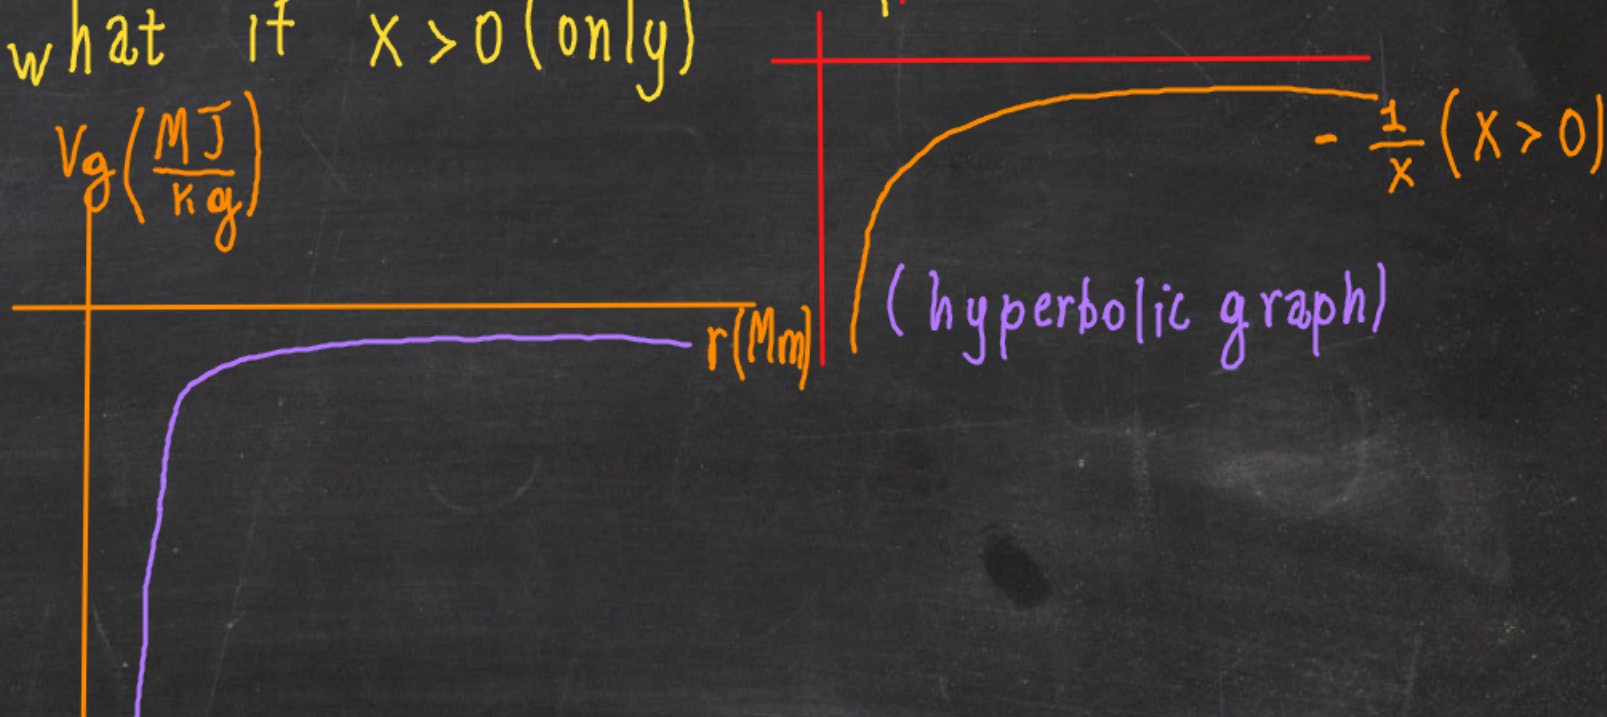 what if x > 0 (only)
Vg (MJ/kg)
r(Mm)
- 1/x (x > 0)
(hyperbolic graph)